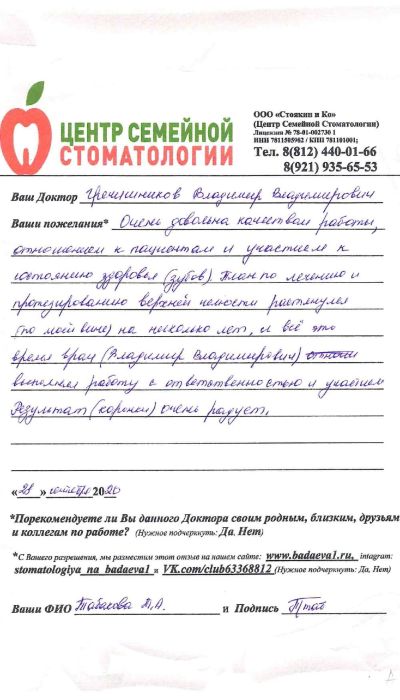 ЦЕНТР СЕМЕЙНОЙ
СТОМАТОЛОГИИ
ООО «Стоякин и Ко»
(Центр Семейной Стоматологии)
Лицензия № 78-01-002730 1
ИНН 7811505962 / КПП 781101001;
Тел. 8(812) 440-01-66
8(921) 935-65-53
Ваш Доктор Гречишников Владимир Владимирович
Ваши пожелания* Очень довольна качеством работы,
отношением к пациентам и участием к
состоянию здоровья (зубов). План по лечению и
протезированию верхней челюсти растянулся
(по моей вине) на несколько лет, и всё это
время врач (Владимир Владимирович)
выполнял работу с ответственностью и участием
Результат (коронки) очень радует.
«28» сентября 2020
*Порекомендуете ли Вы данного Доктора своим родным, близким, друзьям
и коллегам по работе? (Нужное подчеркнуть: Да, Нет)
*С Вашего разрешения, мы разместим этот отзыв на нашем сайте: www.badaeva1.ru, intagram:
stomatologiya_na_badaeva1 и VK.com/club63368812 (Нужное подчеркнуть: Да, Нет)
Ваши ФИО Табакова и Подпись